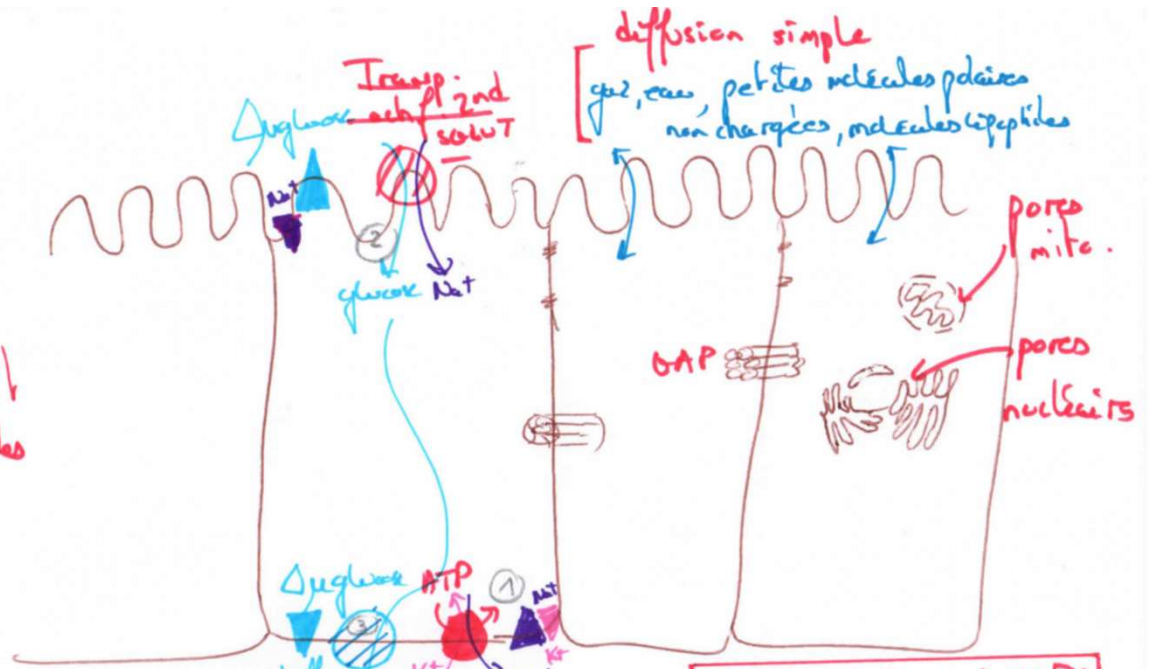 diffusion simple
gaz, eau, petites molécules polaires
non chargées, molécules
Transp.
actif 2nd
SGLUT
Δμglucose
Na+
2
glucose Na+
pores
mito.
GAP
pores
nucléairs
les
Δμglucose
ATP
1
Na+
3
K+
K+